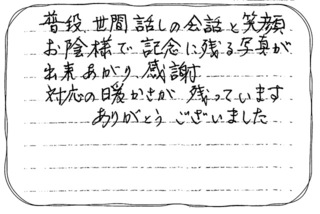 普段、世間話しの会話と笑顔
お陰様で記念に残る写真が
出来あがり、感謝
対応の暖かさが 残っています
ありがとう ございました